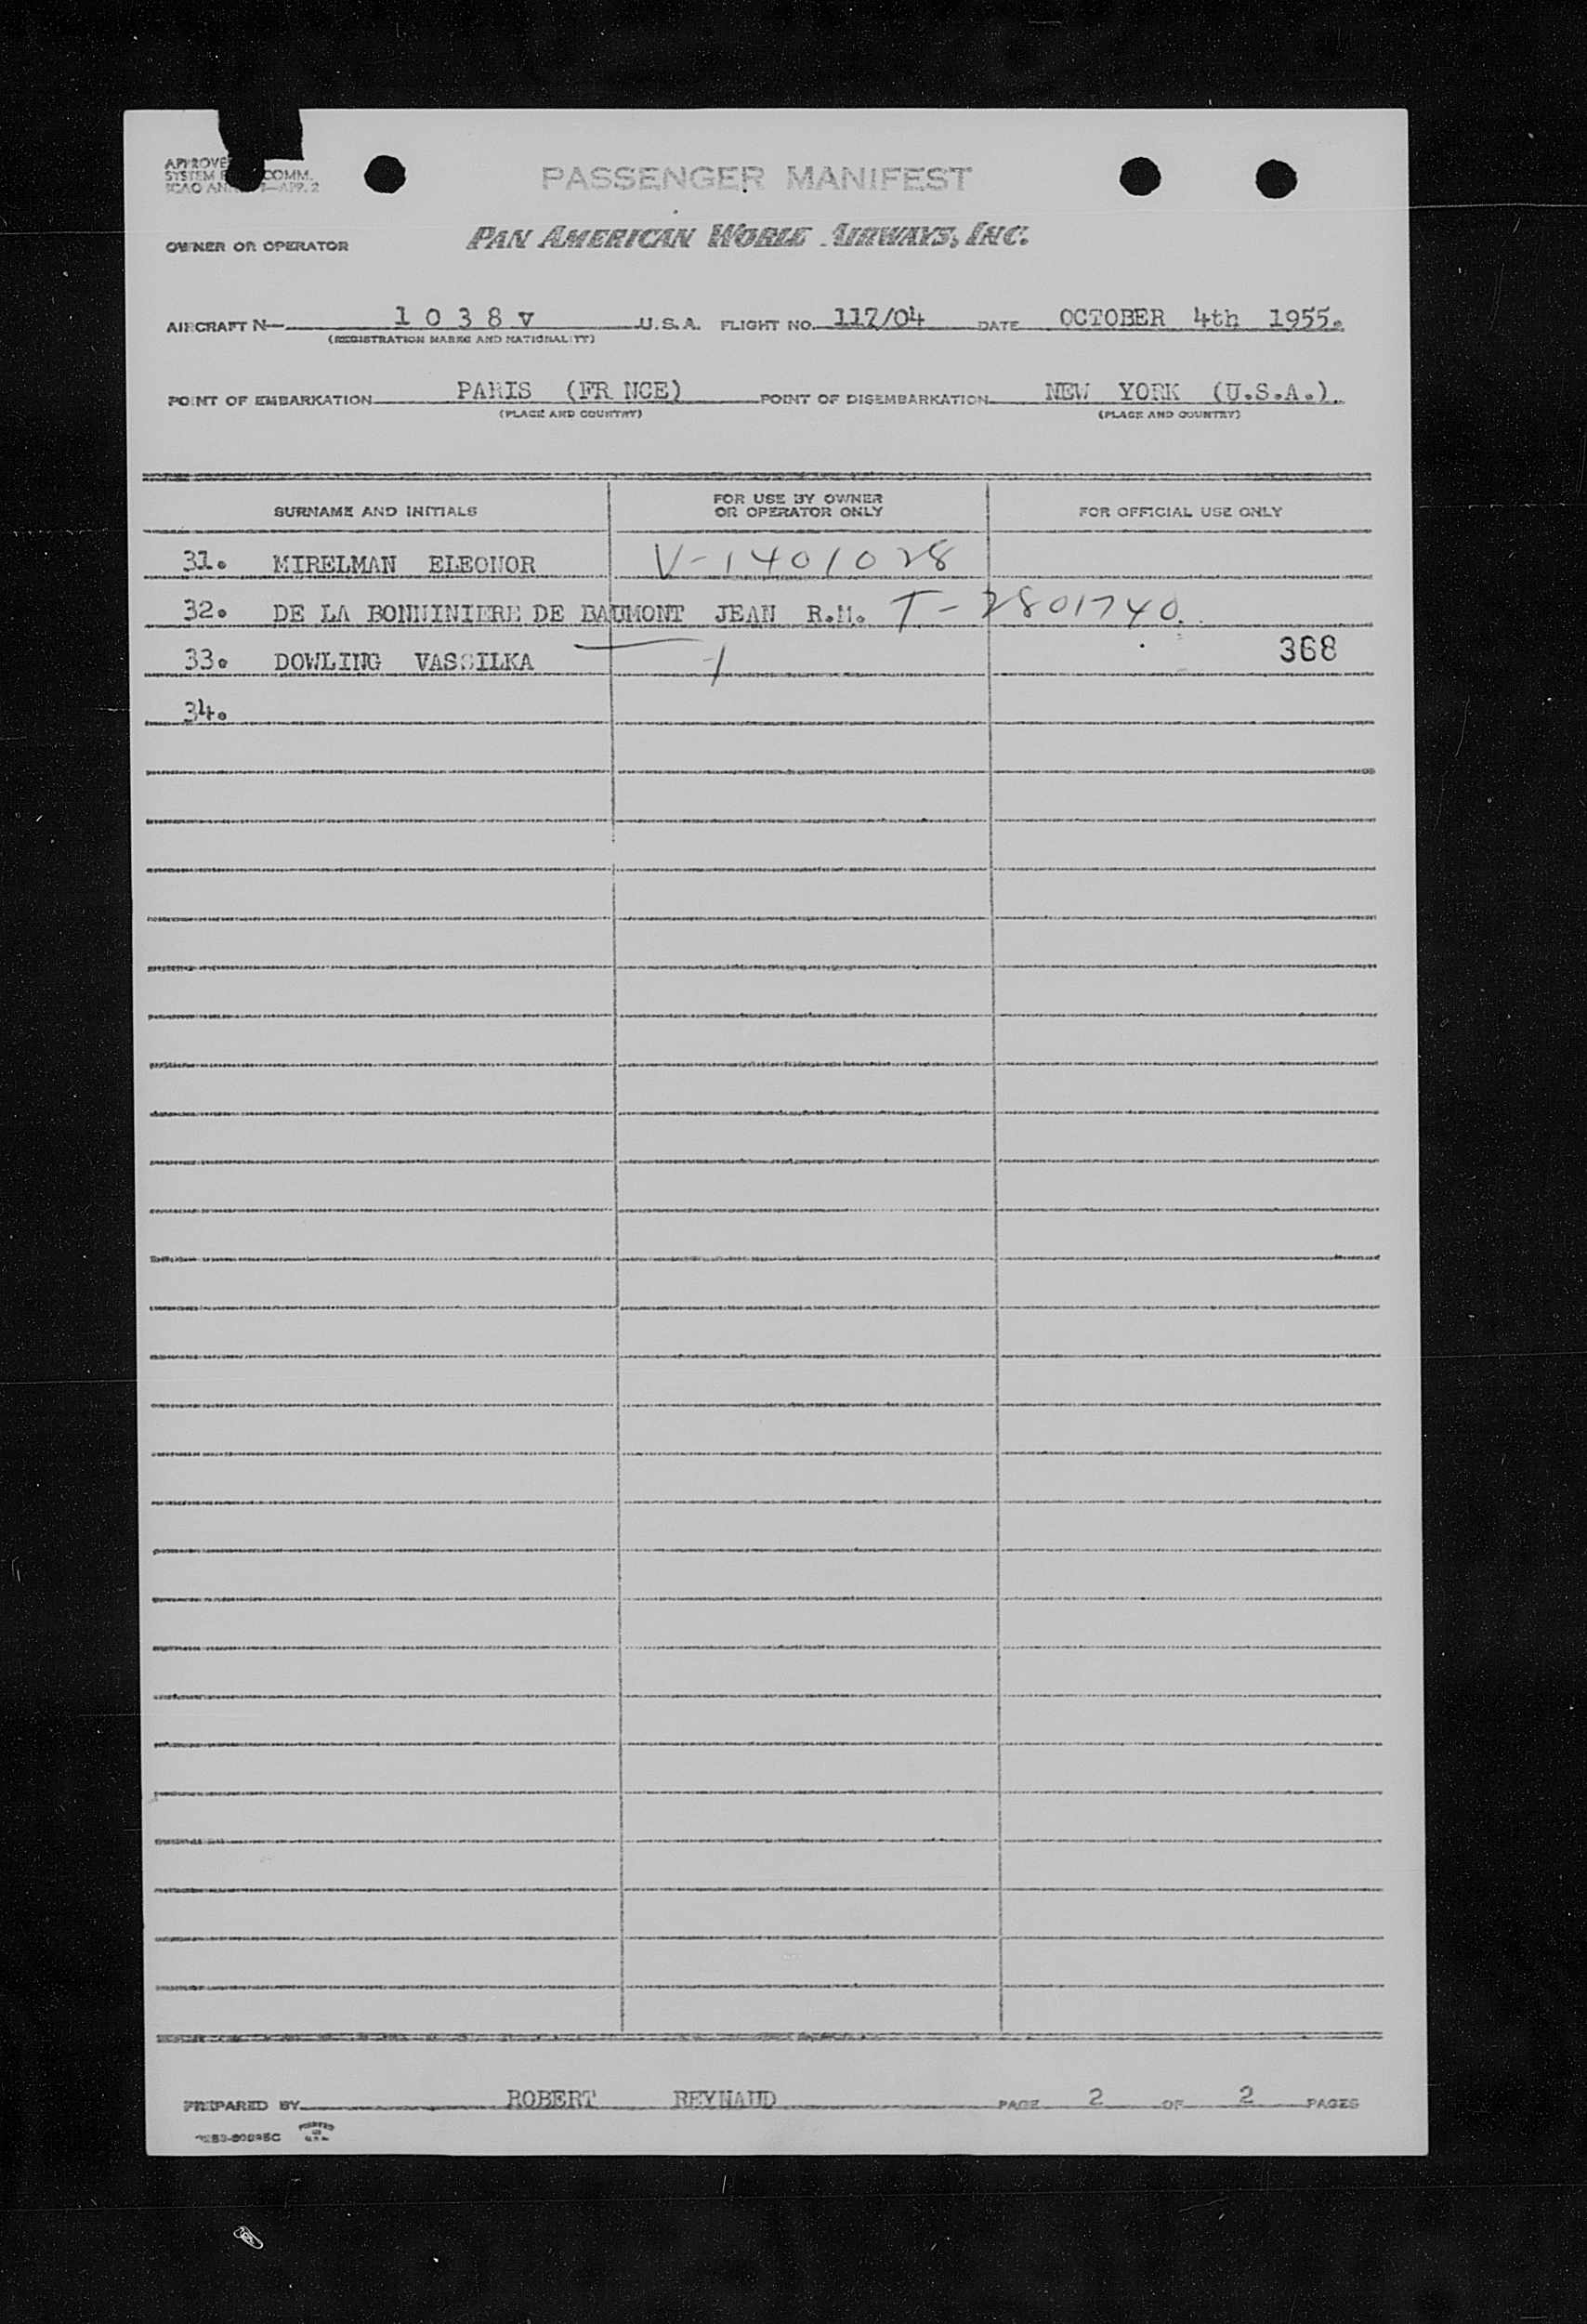 PASSENGER MANIFEST
OWNER OR OPERATOR PAN AMERICAN WORLD AIRWAYS, INC.
AIRCRAFT N 1 0 3 8 V U.S.A. FLIGHT NO. 117/04 DATE OCTOBER 4th 1955.
(REGISTRATION MARKS AND NATIONALITY)
POINT OF EMBARKATION PARIS (FR NCE) POINT OF DISEMBARKATION NEW YORK (U.S.A.).
(PLACE AND COUNTRY) (PLACE AND COUNTRY)
SURNAME AND INITIALS FOR USE BY OWNER OR OPERATOR ONLY FOR OFFICIAL USE ONLY
31. MIRELMAN ELEONOR V-1401028
32. DE LA BONNINIERE DE BAUMONT JEAN R.M. T-2801740
33. DOWLING VASSILKA 368
34.
PREPARED BY ROBERT REYNAUD PAGE 2 OF 2 PAGES